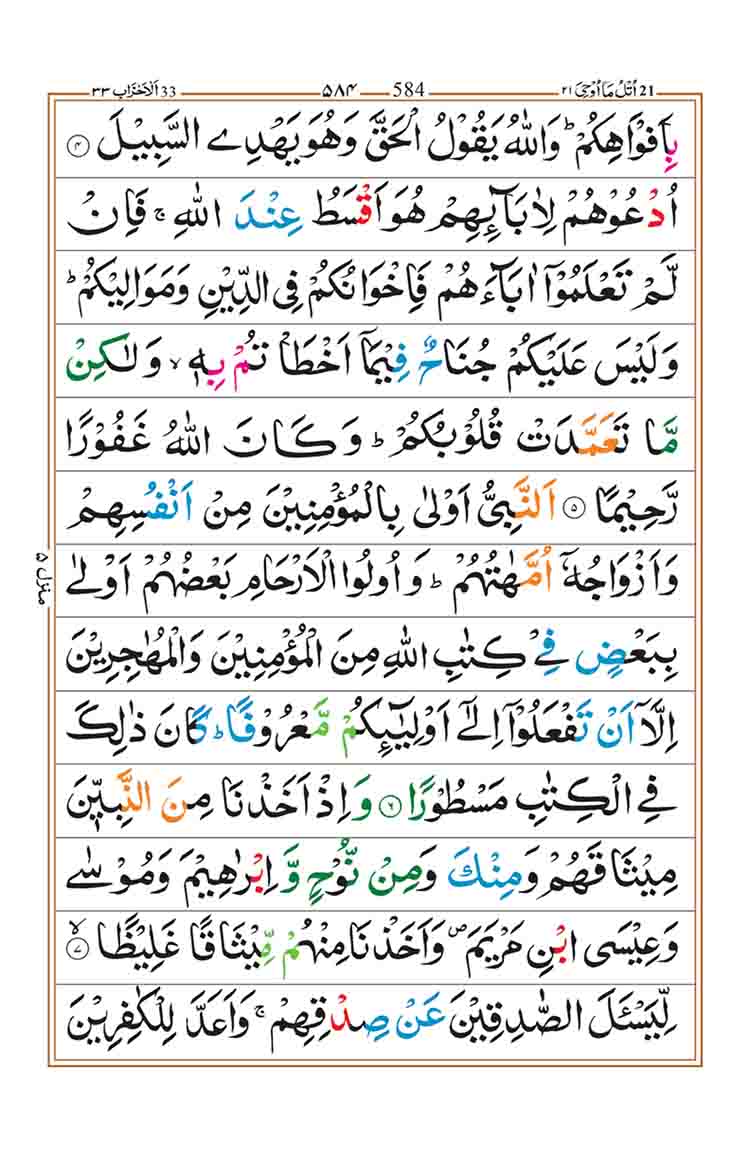 21 اُتْلُ مَا اُوْحِیَ ۲۱ 584 ۵۸۴ 33 اَلْاَحْزَاب ۳۳
بِاَفْوَاهِكُمْ ؕ وَاللّٰهُ يَقُوْلُ الْحَقَّ وَهُوَ يَهْدِے السَّبِيْلَ ۴
اُدْعُوْهُمْ لِاٰبَآئِهِمْ هُوَ اَقْسَطُ عِنْدَ اللّٰهِ ۚ فَاِنْ
لَّمْ تَعْلَمُوْۤا اٰبَآءَهُمْ فَاِخْوَانُكُمْ فِى الدِّيْنِ وَمَوَالِيْكُمْ ؕ
وَلَيْسَ عَلَيْكُمْ جُنَاحٌ فِيْمَاۤ اَخْطَاْ تُمْ بِهٖ ۙ وَلٰكِنْ
مَّا تَعَمَّدَتْ قُلُوْبُكُمْ ؕ وَكَانَ اللّٰهُ غَفُوْرًا
رَّحِيْمًا ۵ اَلنَّبِىُّ اَوْلٰى بِالْمُؤْمِنِيْنَ مِنْ اَنْفُسِهِمْ
وَاَزْوَاجُهٗۤ اُمَّهٰتُهُمْ ؕ وَاُولُوا الْاَرْحَامِ بَعْضُهُمْ اَوْلٰى
بِبَعْضٍ فِےْ كِتٰبِ اللّٰهِ مِنَ الْمُؤْمِنِيْنَ وَالْمُهٰجِرِيْنَ
اِلَّاۤ اَنْ تَفْعَلُوْۤا اِلٰٓى اَوْلِيٰٓئِكُمْ مَّعْرُوْفًا ؕ كَانَ ذٰلِكَ
فِے الْكِتٰبِ مَسْطُوْرًا ۶ وَاِذْ اَخَذْنَا مِنَ النَّبِيّٖنَ
مِيْثَاقَهُمْ وَمِنْكَ وَمِنْ نُّوْحٍ وَّاِبْرٰهِيْمَ وَمُوْسٰى
وَعِيْسَى ابْنِ مَرْيَمَ ۖ وَاَخَذْنَا مِنْهُمْ مِّيْثَاقًا غَلِيْظًا ۙ۷
لِّيَسْئَلَ الصّٰدِقِيْنَ عَنْ صِدْقِهِمْ ۚ وَاَعَدَّ لِلْكٰفِرِيْنَ
منزل ۵